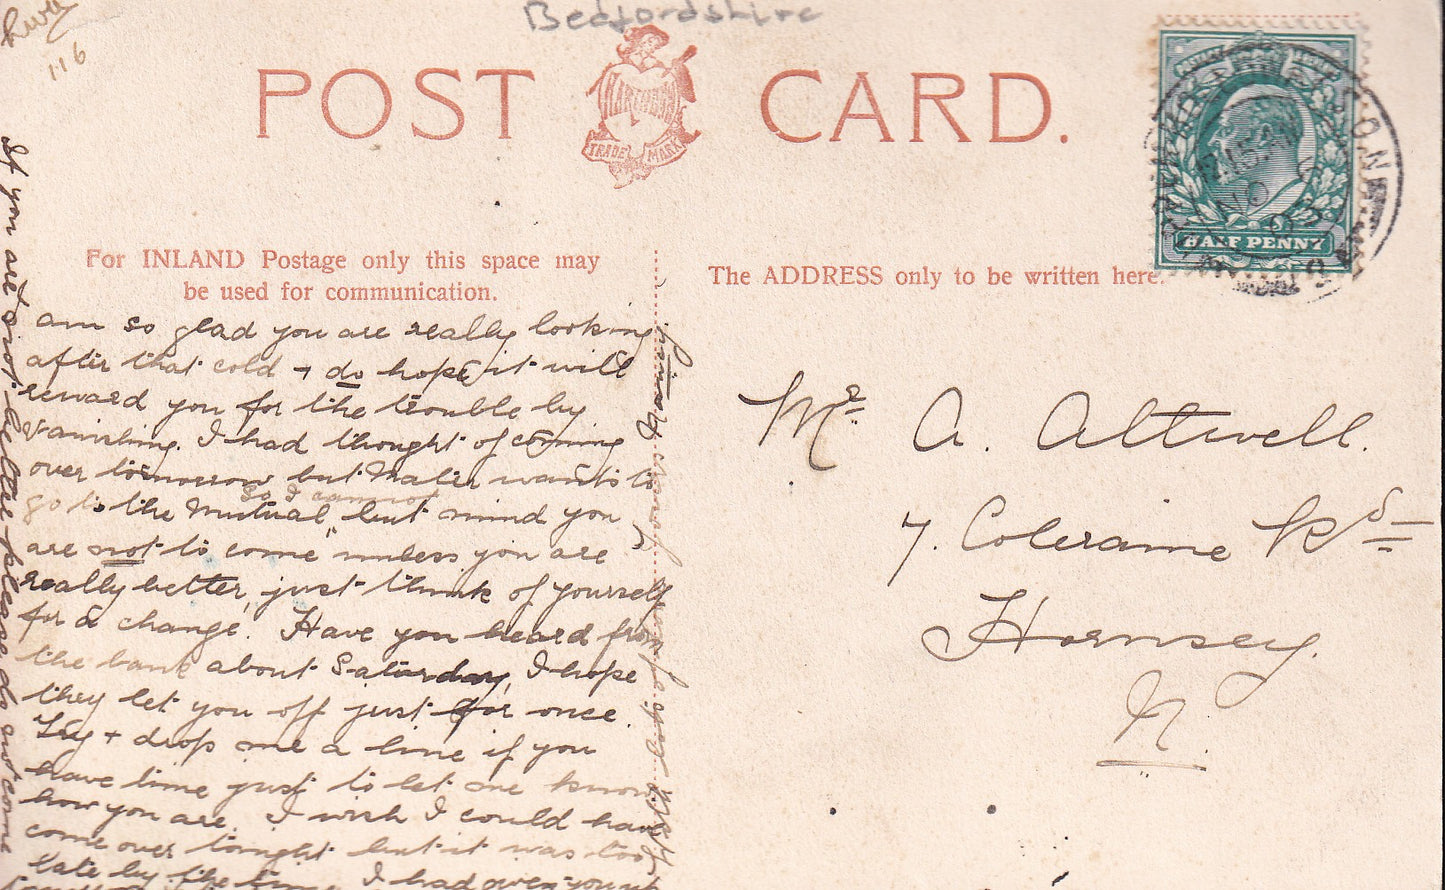 Bedfordshire
116
POST CARD.
HARTMANN
TRADE MARK
HALF PENNY
For INLAND Postage only this space may
be used for communication.
The ADDRESS only to be written here.
am so glad you are really looking
after that cold + do hope it will
reward you for the trouble by
vanishing. I had thought of coming
over tomorrow but Mater wants to
go to the Mutual so I cannot, but mind you
are not to come unless you are
really better, just think of yourself
for a change. Have you heard from
the bank about Saturday, I hope
they let you off just for once.
Try + drop me a line if you
have time just to let me know
how you are. I wish I could have
come over tonight but it was too
late by the time I had
If you are not better please do not come
Mr. A. Attwell.
7. Coleraine Rd
Hornsey.
N.